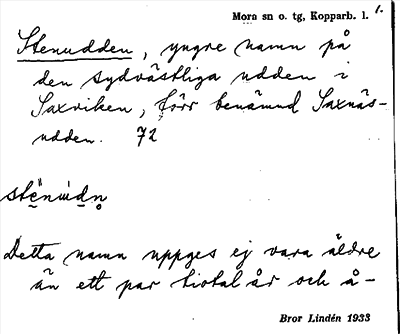 Mora sn o. tg, Kopparb. l. 1.
Stenudden, yngre namn på
den sydvästliga udden i
Saxviken, förr benämnd Saxnäs-
udden. 72
Detta namn uppges ej vara äldre
än ett par tiotal år och å-
Bror Lindén 1933